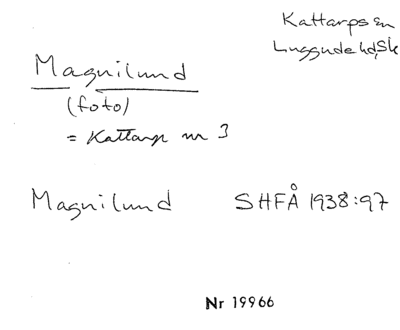 Kattarps sn
Luggude hd, Sk
Magnilund
(foto)
= Kattarp nr 3
Magnilund SHFÅ 1938:97
Nr 19966